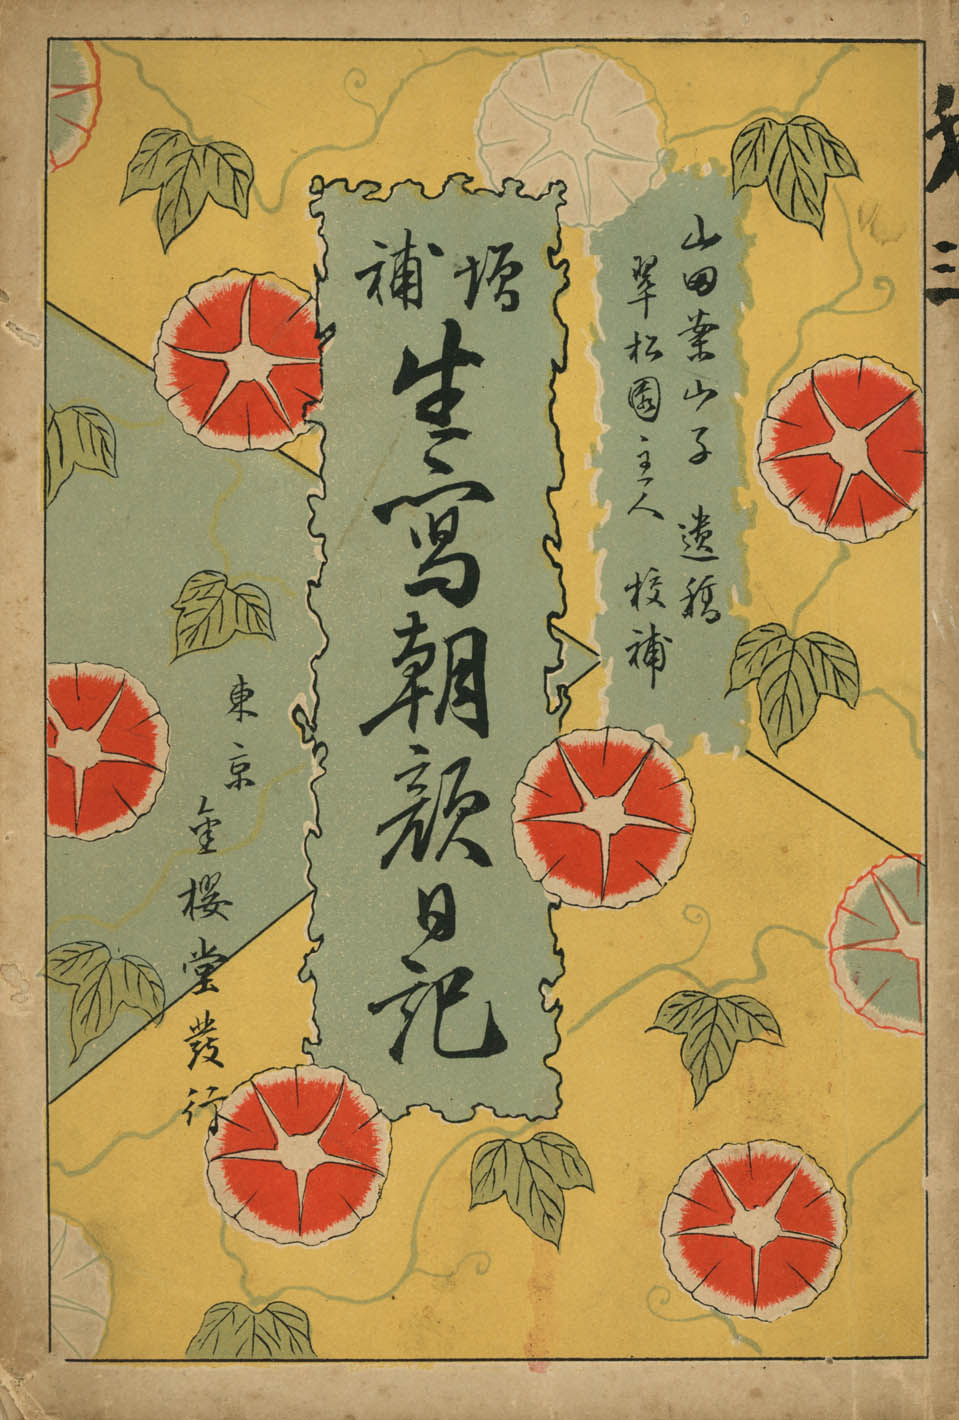 山田案山子 遺稿
翠松園主人 校補
増補
生寫朝顔日記
東京
金櫻堂發行
三